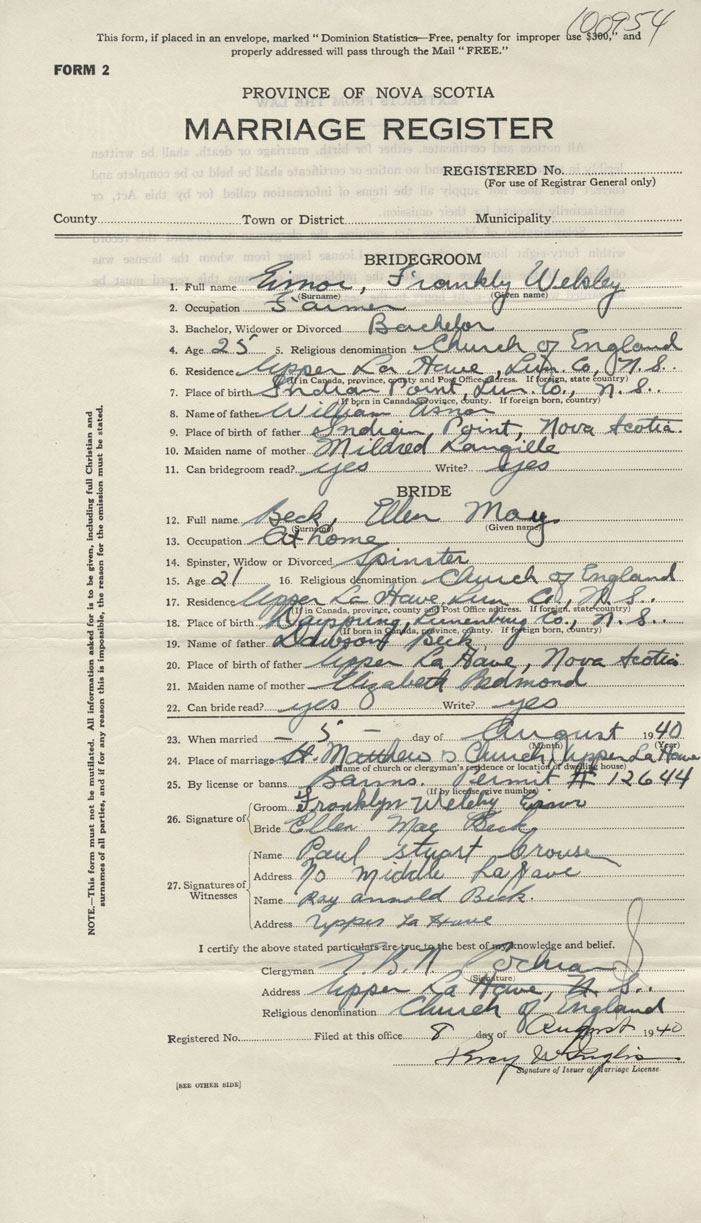 100954
This form, if placed in an envelope, marked "Dominion Statistics—Free, penalty for improper use $300," and
properly addressed will pass through the Mail "FREE."
FORM 2
PROVINCE OF NOVA SCOTIA
MARRIAGE REGISTER
REGISTERED No.
(For use of Registrar General only)
County Town or District Municipality
BRIDEGROOM
1. Full name Eisnor, Franklyn Welsley
(Surname) (Given name)
2. Occupation Farmer
3. Bachelor, Widower or Divorced Bachelor
4. Age 25 5. Religious denomination Church of England
6. Residence Upper La Have, Lun. Co, N.S.
(If in Canada, province, county and Post Office address. If foreign, state country)
7. Place of birth Indian Point, Lun. Co., N.S.
(If born in Canada, province, county. If foreign born, country)
8. Name of father William Eisnor
9. Place of birth of father Indian Point, Nova Scotia.
10. Maiden name of mother Mildred Langille
11. Can bridegroom read? yes Write? yes
BRIDE
12. Full name Beck, Ellen May
(Surname) (Given name)
13. Occupation At home
14. Spinster, Widow or Divorced Spinster
15. Age 21 16. Religious denomination Church of England
17. Residence Upper La Have, Lun Co., N.S.
(If in Canada, province, county and Post Office address. If foreign, state country)
18. Place of birth Dayspring, Lunenburg Co., N.S.
(If born in Canada, province, county. If foreign born, country)
19. Name of father Dawson Beck
20. Place of birth of father Upper La Have, Nova Scotia
21. Maiden name of mother Elizabeth Redmond
22. Can bride read? yes Write? yes
23. When married — 5 — day of August 1940
(Month) (Year)
24. Place of marriage St. Matthew's Church, Upper La Have
(Name of church or clergyman's residence or location of dwelling house)
25. By license or banns Banns. Permit # 12644
(If by license, give number)
26. Signature of
Groom Franklyn Welsley Eisnor
Bride Ellen Mae Beck
27. Signatures of Witnesses
Name Paul Stuart Crouse
Address Middle La Have
Name Ray Arnold Beck.
Address Upper La Have
I certify the above stated particulars are true to the best of my knowledge and belief.
Clergyman Cochran
(Signature)
Address Upper La Have, N.S.
Religious denomination Church of England
Registered No. Filed at this office 8 day of August 1940
Percy W Inglis
Signature of Issuer of Marriage License.
[SEE OTHER SIDE]
NOTE.—This form must not be mutilated. All information asked for is to be given, including full Christian and
surnames of all parties, and if for any reason this is impossible, the reason for the omission must be stated.